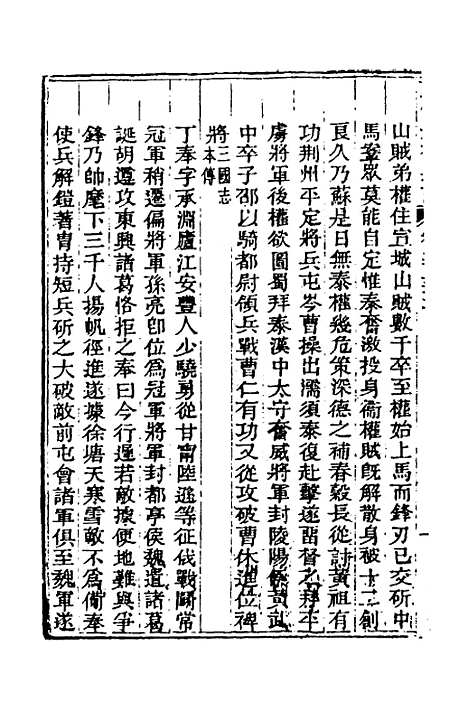 山賊弟權住宣城山賊數千卒至權始上馬而鋒刃已交斫中
馬鞍眾莫能自定惟泰奮激投身衞權賊既解散身被十二創
良久乃蘇是日無泰權幾危策深德之補春穀長從討黃祖有
功荆州平定將兵屯岑曹操出濡須泰復赴擊遂留督之拜平
虜將軍後權欲圖蜀拜泰漢中太守奮威將軍封陵陽侯黃武
中卒子邵以騎都尉領兵戰曹仁有功又從攻破曹休進位裨
將三國志本傳
丁奉字承淵廬江安豐人少驍勇從甘甯陸遜等征伐戰鬭常
冠軍稍遷偏將軍孫亮卽位爲冠軍將軍封都亭侯魏遣諸葛
誕胡遵攻東興諸葛恪拒之奉曰今行遲若敵據便地難與爭
鋒乃帥麾下三千人揚帆徑進遂據徐塘天寒雪敵不爲備奉
使兵解鎧著胄持短兵斫之大破敵前屯會諸軍俱至魏軍遂